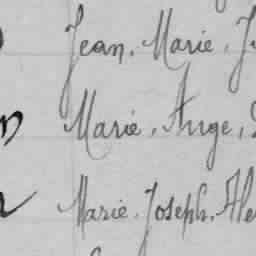 Jean, Marie, J
Marie, Ange,
Marie, Joseph, Ale